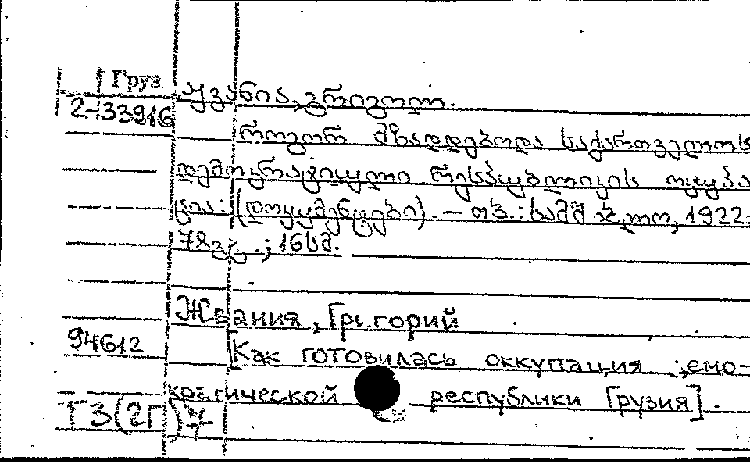 Груз
2-33916
ჟვანია, გრიგოლ.
როგორ მზადდებოდა საქართველოს
დემოკრატიული რესპუბლიკის ოკუპა
ცია: (დოკუმენტები). – თბ.: სამშ 1922.
78გვ. ; 16სმ.
Жвания, Григорий
94612
Как готовилась оккупация
кратической республики Грузия].
Т3(2Г)7